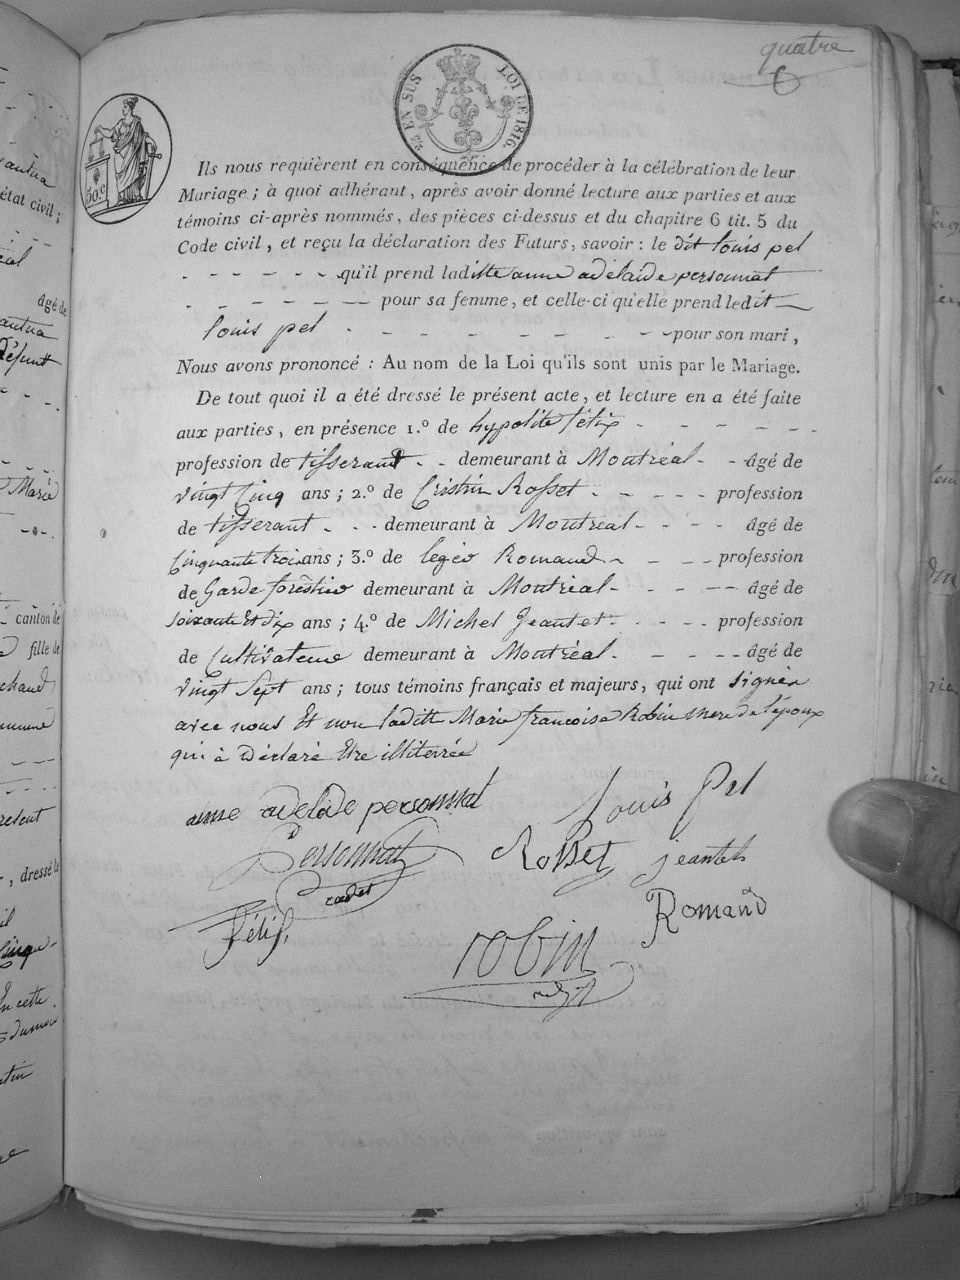 quatre
6
24 EN SUS
LOI DE 1816.
50.c
Ils nous requièrent en conséquence de procéder à la célébration de leur
Mariage ; à quoi adhérant, après avoir donné lecture aux parties et aux
témoins ci-après nommés, des pièces ci-dessus et du chapitre 6 tit. 5 du
Code civil, et reçu la déclaration des Futurs, savoir : le dit louis pel
qu'il prend laditte anne adelaide personnat
pour sa femme, et celle-ci qu'elle prend ledit
louis pel pour son mari,
Nous avons prononcé : Au nom de la Loi qu'ils sont unis par le Mariage.
De tout quoi il a été dressé le présent acte, et lecture en a été faite
aux parties, en présence 1.º de hypolite félix
profession de tisserant demeurant à Montréal âgé de
vingt Cinq ans ; 2.º de Cristin Rosset profession
de tisserant demeurant à Montréal âgé de
Cinquante trois ans ; 3.º de legér Romand profession
de Garde forèstier demeurant à Montréal âgé de
soixante Et dix ans ; 4.º de Michel Jeantet profession
de Cultivateur demeurant à Montréal âgé de
vingt Sept ans ; tous témoins français et majeurs, qui ont signér
avec nous Et non laditte Marie francoise Robin mere de l'époux
qui à déclaré Etre illiterrée
anne adelaide personnat Louis Pel
Personnat Rosset jeantet
cadet
félix Romand
robin
adjt